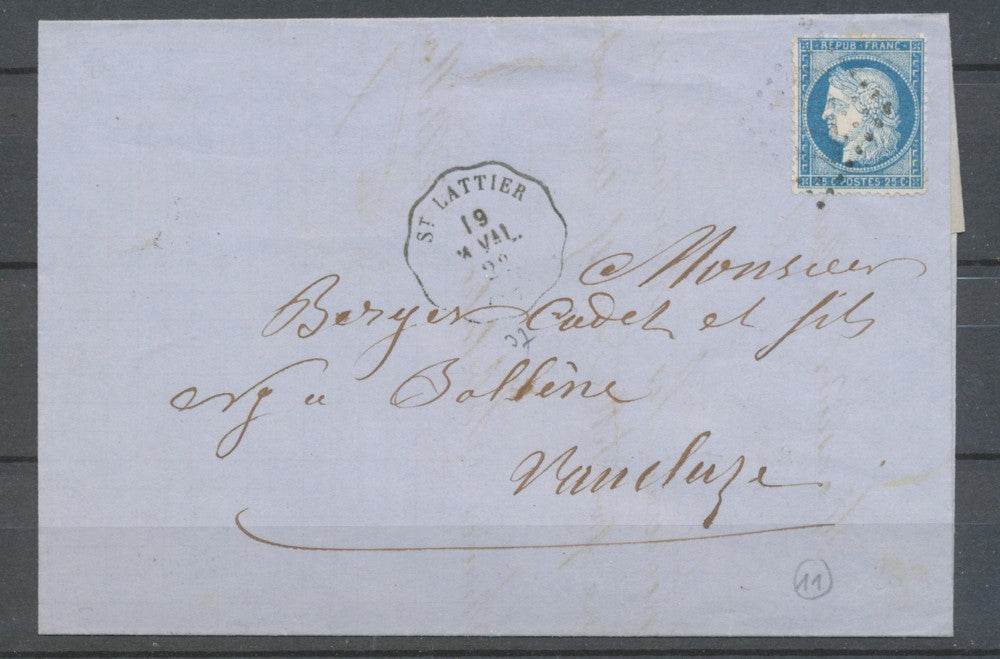 REPUB · FRANC ·
25 C. POSTES 25 C.
ST LATTIER
19
VAL.
Monsieur
Berger Cadet et fils
à Bollène
Vaucluze
11